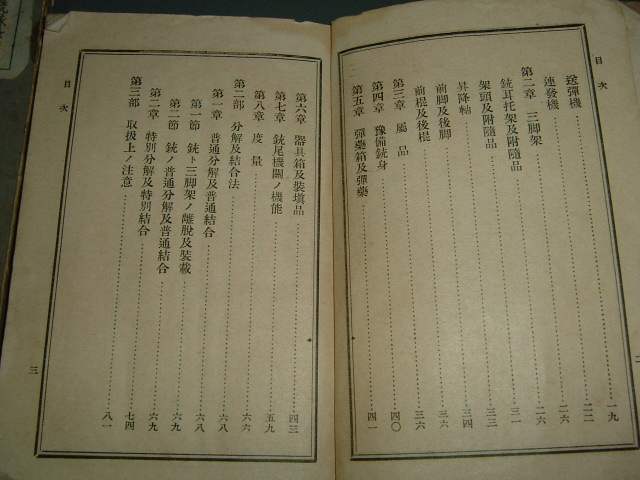 目次
送彈機……一九
連發機……二二
第二章　三脚架……二六
銃耳托架及附隨品……二六
架頭及附隨品……三一
昇降軸……三三
前脚及後脚……三四
前棍及後棍……三六
第三章　屬品……三六
第四章　豫備銃身……四〇
第五章　彈藥箱及彈藥……四一
二
第六章　器具箱及裝塡品……四三
第七章　銃尾機關ノ機能……五九
第八章　度量……六六
第二部　分解及結合法……六八
第一章　普通分解及普通結合……六八
第一節　銃ト三脚架ノ離脱及裝載……六九
第二節　銃ノ普通分解及普通結合……六九
第二章　特別分解及特別結合……七四
第三部　取扱上ノ注意……八一
目次
三